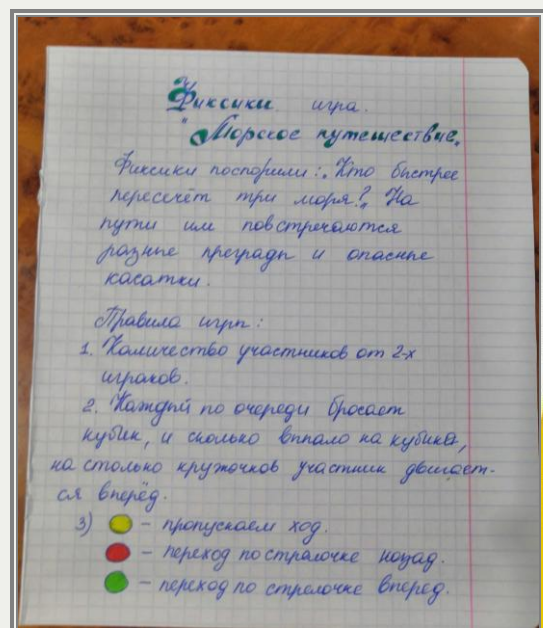 Фиксики игра.
"Морское путешествие"
Фиксики поспорили: „Кто быстрее
пересечёт три моря?" На
пути им повстречаются
разные преграды и опасные
касатки.
Правила игры:
1. Количество участников от 2-х
игроков.
2. Каждый по очереди бросает
кубик, и сколько выпало на кубике,
на столько кружочков участник двигает-
ся вперёд.
3) - пропускаем ход.
- переход по стрелочке назад.
- переход по стрелочке вперед.